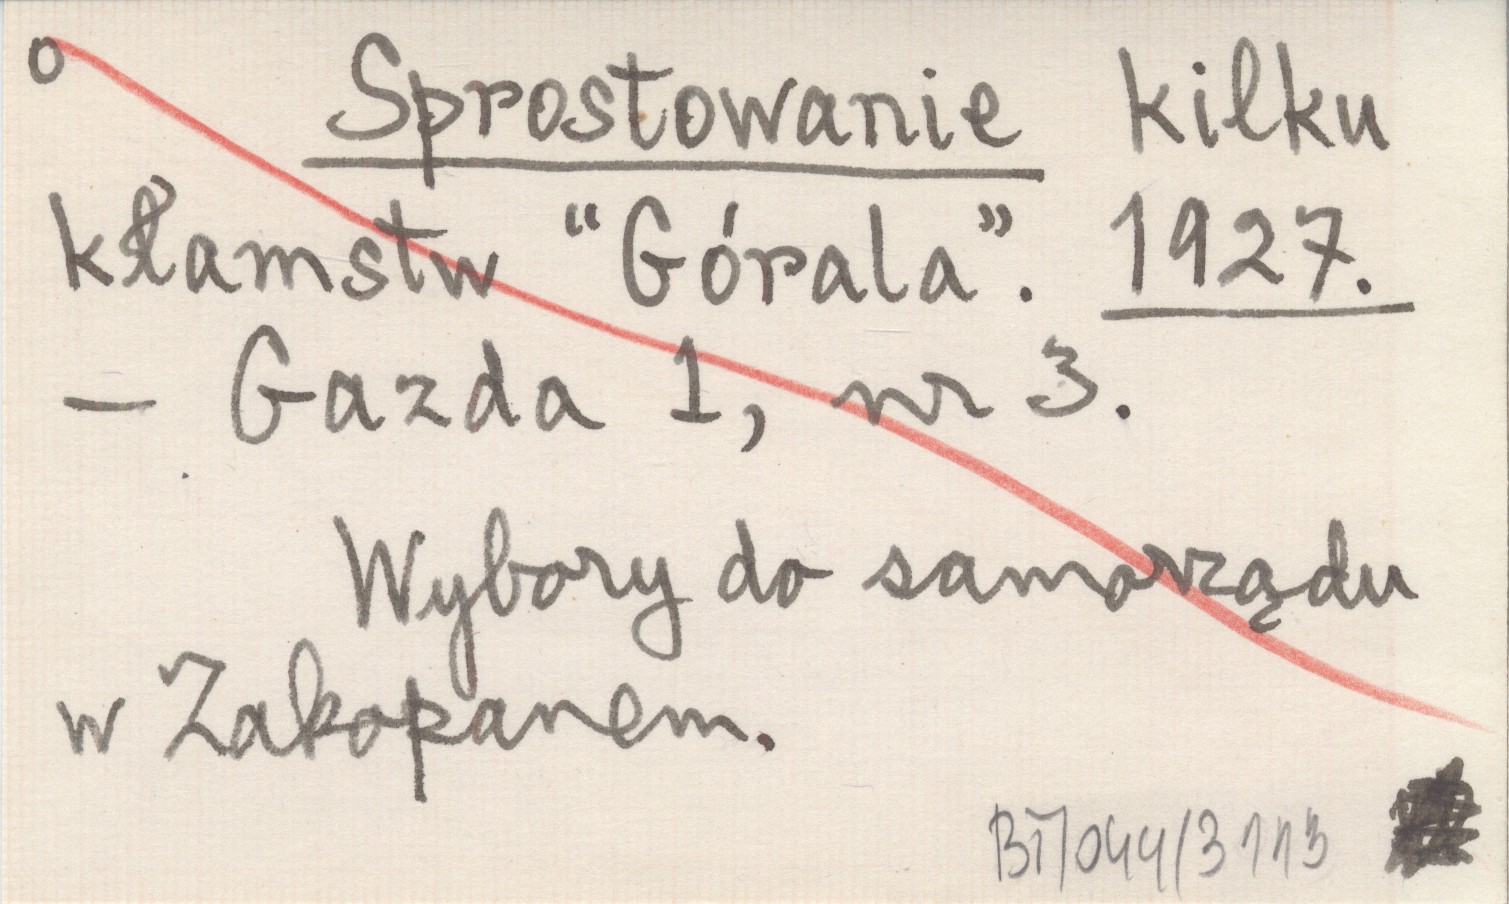 o Sprostowanie kilku
kłamstw “Górala”. 1927.
— Gazda 1, nr 3.
Wybory do samorządu
w Zakopanem.
BI/044/3113